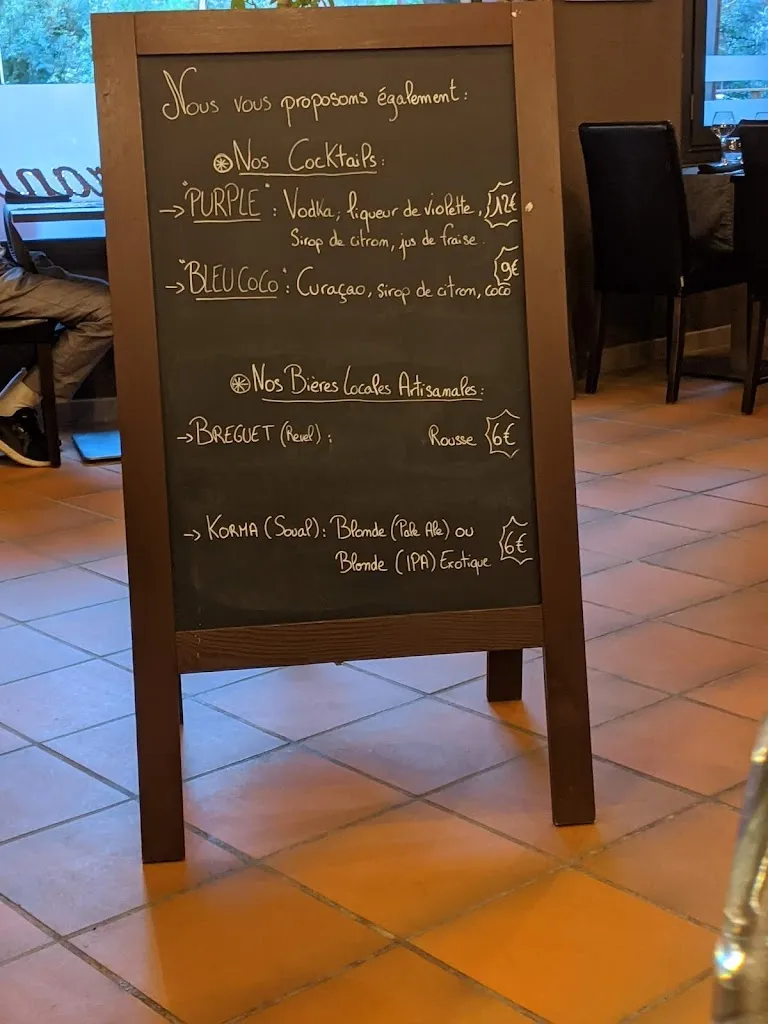 Nous vous proposons également :
Nos Cocktails :
→ "PURPLE" : Vodka, liqueur de violette, 12€
Sirop de citron, jus de fraise.
9€
→ "BLEU COCO" : Curaçao, sirop de citron, coco
Nos Bières Locales Artisanales :
→ BREGUET (Revel) : Rousse 6€
→ KORMA (Soual) : Blonde (Pale Ale) ou
6€
Blonde (IPA) Exotique